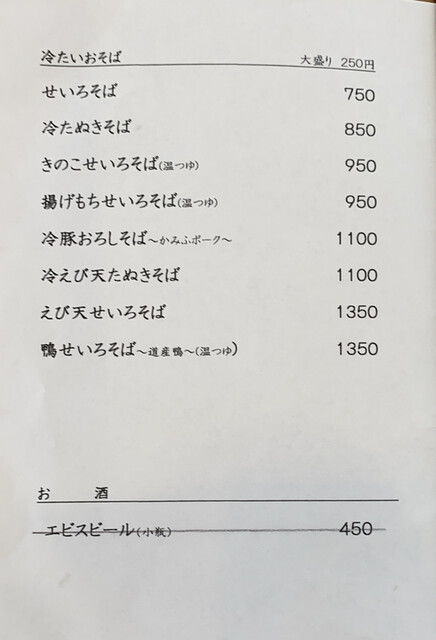 冷たいおそば 大盛り 250円
せいろそば 750
冷たぬきそば 850
きのこせいろそば(温つゆ) 950
揚げもちせいろそば(温つゆ) 950
冷豚おろしそば～かみふポーク～ 1100
冷えび天たぬきそば 1100
えび天せいろそば 1350
鴨せいろそば～道産鴨～(温つゆ) 1350
お 酒
エビスビール(小瓶) 450